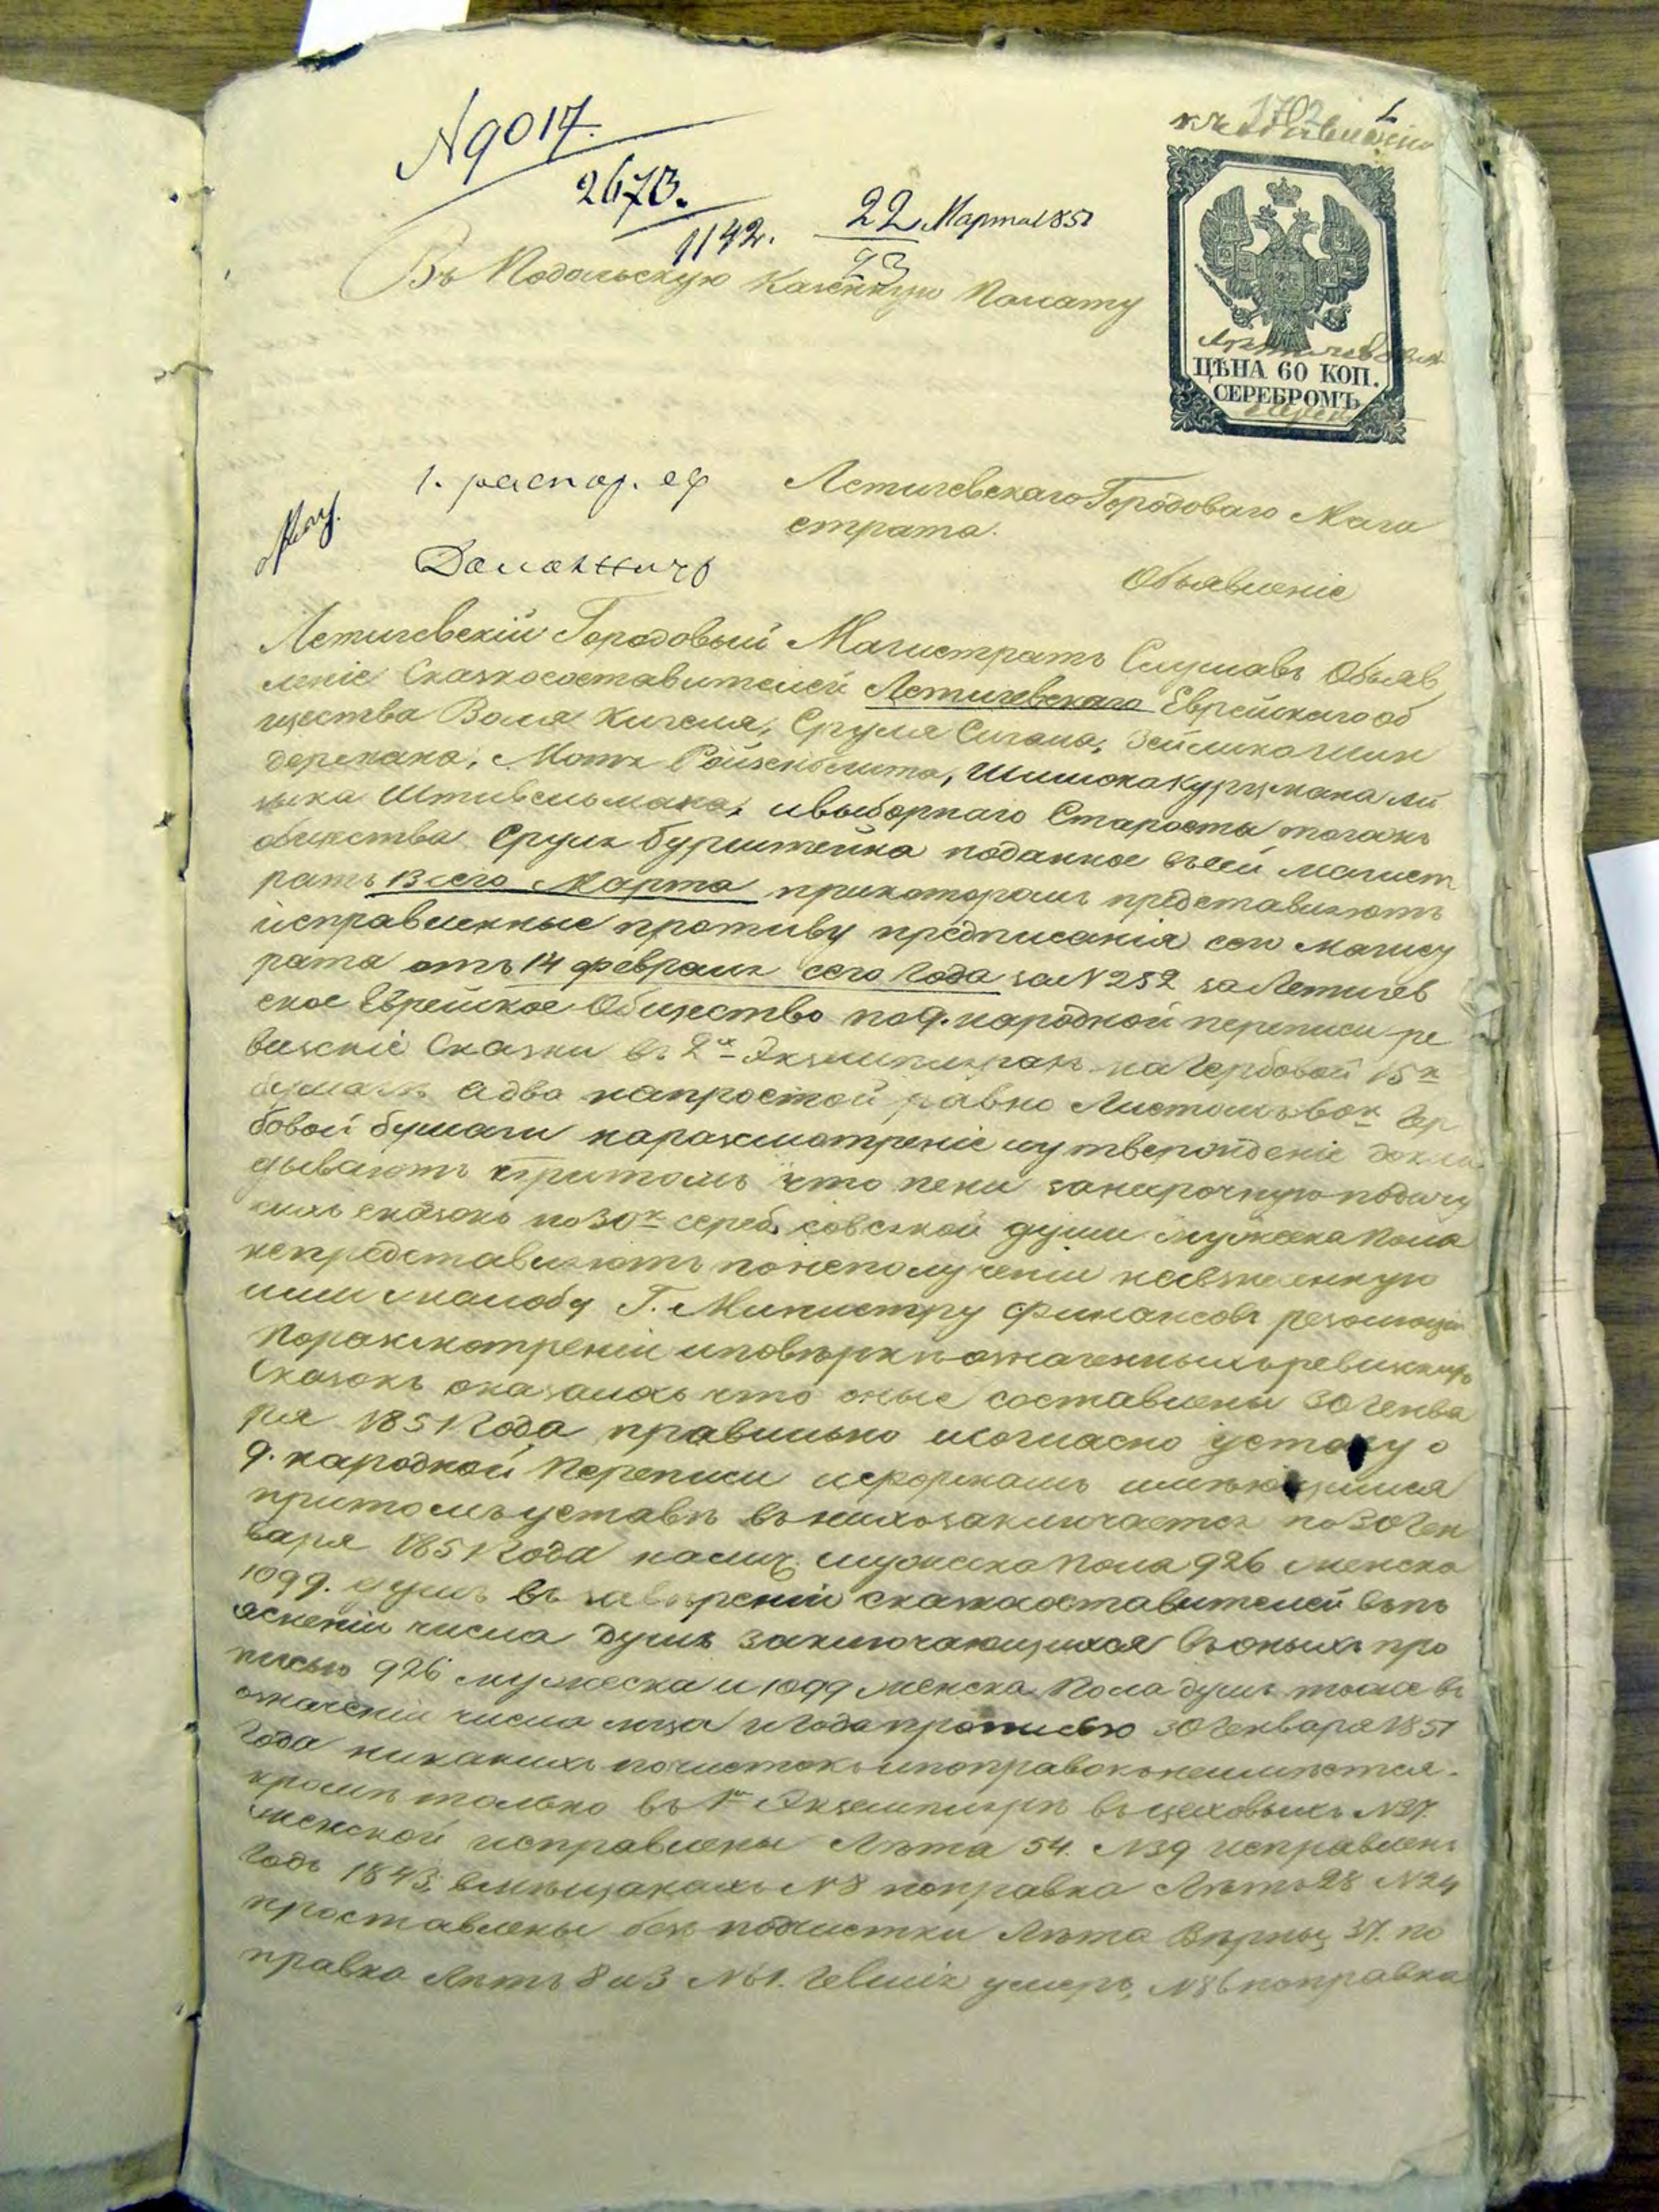 1702
N 9017.
2673.
1142.
22 Марта 1851
93
Въ Подольскую Казенную Полату
ЦѢНА 60 КОП.
СЕРЕБРОМЪ
Летичевскаго Городоваго Маги
страта.
Объявленіе
Летичевскій Городовый Магистратъ Слушавъ Объяв
леніе Сказкосоставителей Летичевскаго Еврейскаго об
щества Воля Кигеля, Сруля Сигала,
дермана, Мошк
Штивельмана, и выборнаго Старосты тогожъ
общества Срул Бурштейна поданное въ сей магист
ратъ 13 сего Марта при которомъ представляютъ
исправленные противу предписанія сего магист
рата отъ 14 февраля сего Года за N 252 за Летичев
ское Еврейское Общество по 9. народной переписи ре
визскіе Сказки въ 2х Экземплярахъ на гербовой 15 к
бумагѣ а два на простой равно Листомъ гер
бовой бумаги на разсмотреніе и утвержденіе докла
дываютъ при томъ что пени за несрочную подачу
сихъ сказокъ по 30 к сереб. со всякой души мужеска пола
не представляютъ по неполученіи на
ими жалобу Г. Министру Финансовъ резолюціи
По разсмотреніи и повѣрки означенныхъ ревизскихъ
Сказокъ оказалось что оные составлены 30 Генва
ря 1851 Года правильно и согласно уставу о
9. народной Переписи и формамъ имѣющимся
при томъ уставѣ въ нихъ заключается по 30 Ген
варя 1851 Года налич. мужеска пола 926 женска
1099. душъ въ завѣреніи сказкосоставителей въ по
ясненіи числа душъ заключающихся въ оныхъ про
писью 926 мужеска и 1099 женска Пола душъ тоже въ
означеніи числа мѣсяца и года прописью 30 Генваря 1851
Года никакихъ почистокъ и поправокъ не имѣется.
кромѣ только въ 1м Экземплярѣ въ цеховыхъ N 27.
женской исправлены Лѣта 54. N 39 исправленъ
Годъ 1843, в мѣщанахъ N 8 поправка Лѣтъ 28 N 24
проставлены безъ подчистки Лѣта 37. по
правка Лѣтъ 8 и 3 N 61. умеръ, N 86 поправка